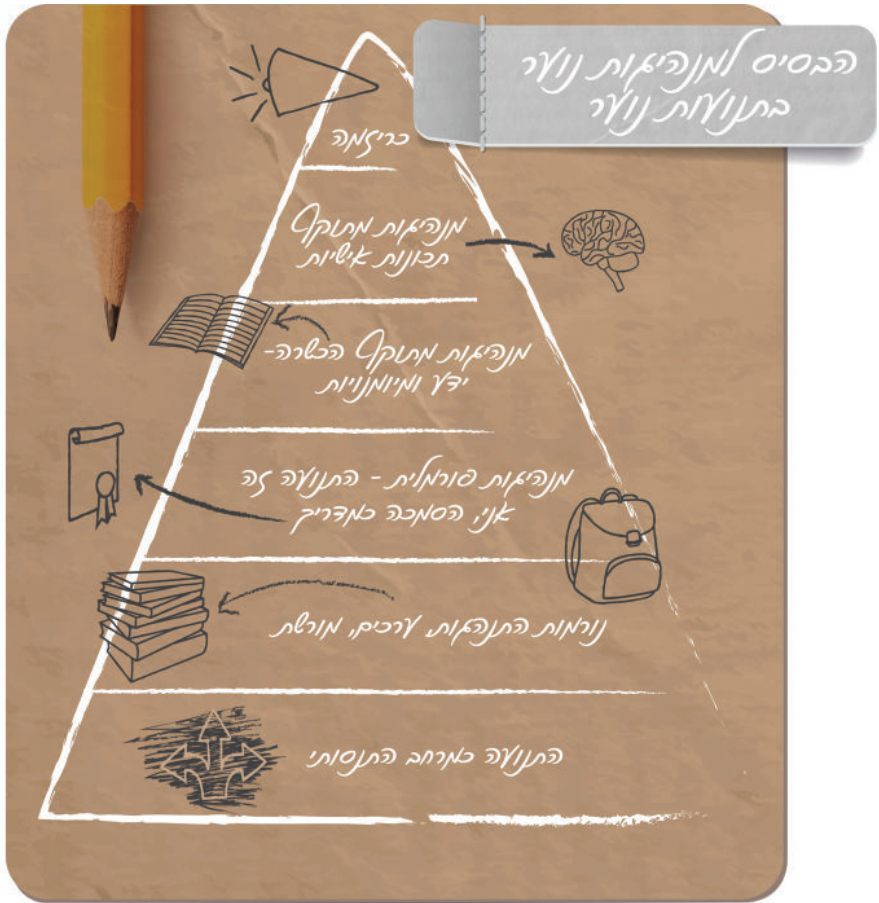 הבסיס למנהיגות נוער
בתנועות נוער
כריזמה
מנהיגות מתוקף
תכונות אישיות
מנהיגות מתוקף הכשרה-
ידע ומיומנויות
מנהיגות פורמלית - התנועה זה
אני, הסמכה כמדריך
נורמות התנהגות, ערכים, מורשת
התנועה כמרחב התנסותי